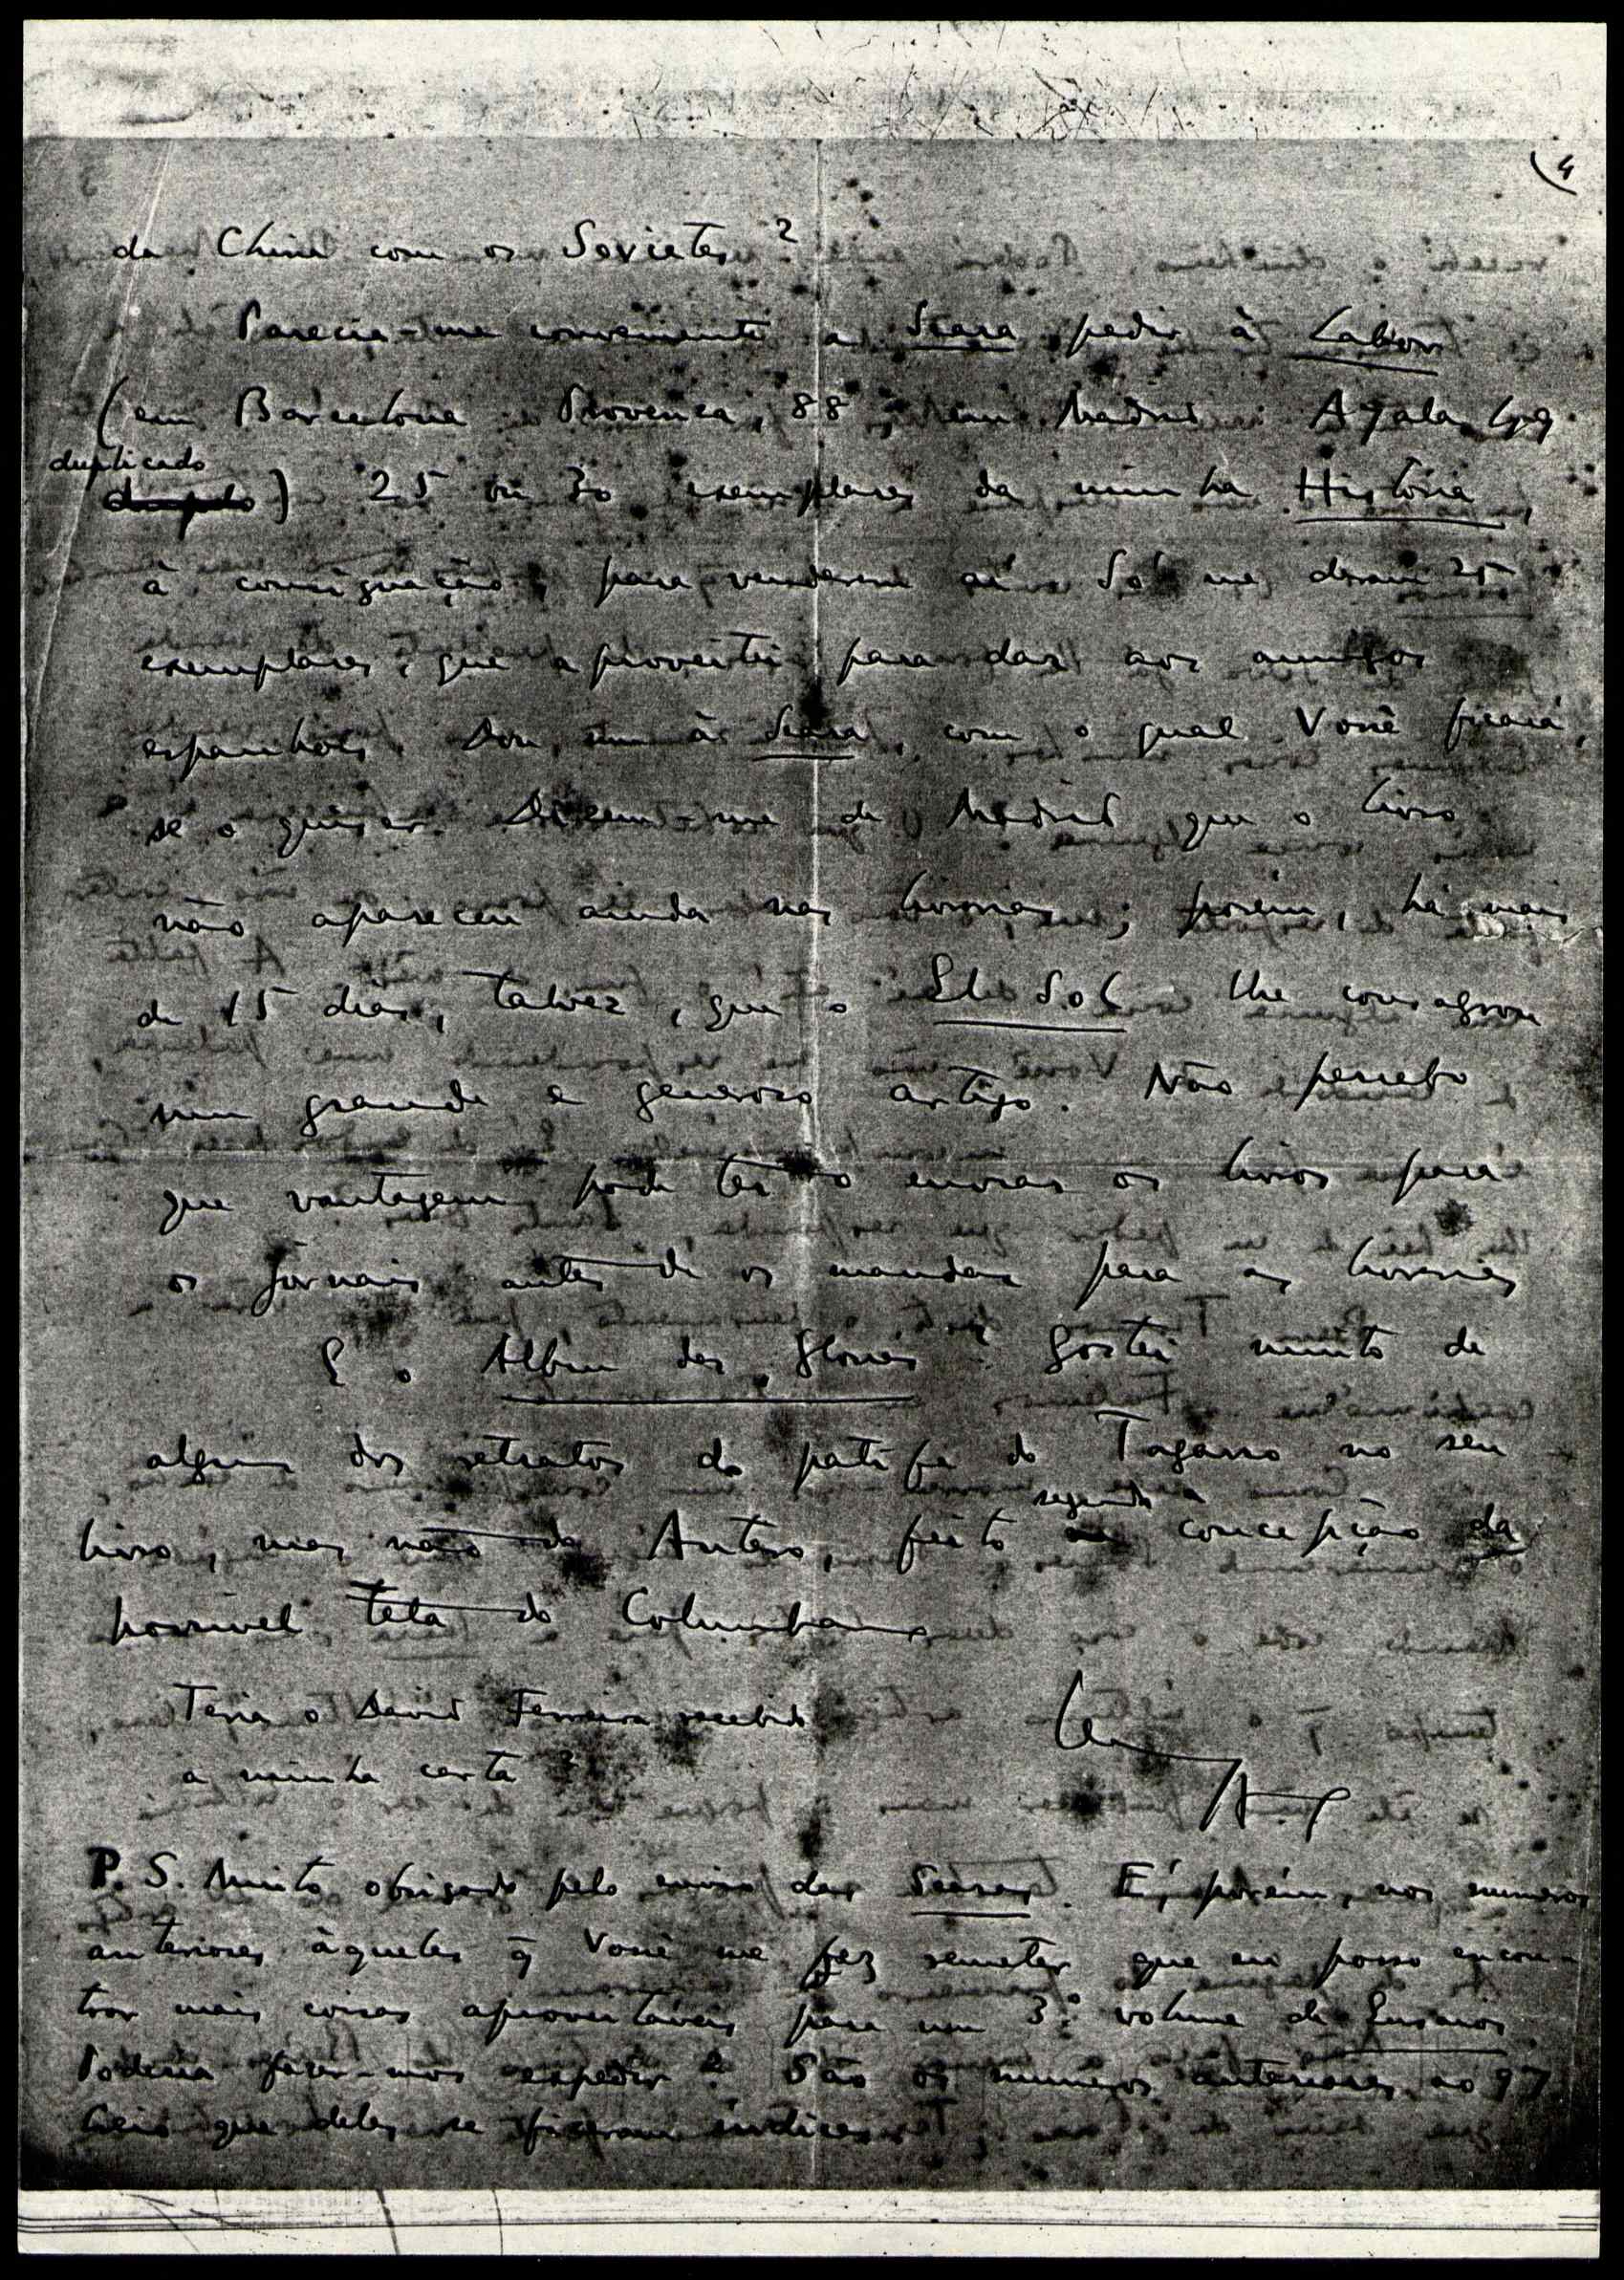 4
da China com os Sovietes?
Parecia-me conveniente a Seara pedir à Labor
(em Barcelona: Provenza, 88; em Madrid: Ayala, 49
duplicado) 25 ou 30 exemplares da minha História,
à consignação, para venderem aí. Só me deram 25
exemplares, que aproveitei para dar aos amigos
espanhois. Dou um à Seara, com o qual Você ficará,
se o quiser. Dizem-me de Madrid que o livro
não apareceu ainda nas livrarias; porém, há mais
de 15 dias, talvez, que o El Sol lhe consagrou
um grande e generoso artigo. Não percebo
que vantagem pode ter o enviar os livros para
os jornais antes de os mandar para as livrarias
E o Album das Glorias? Gostei muito de
alguns dos retratos do patife do Tagarro no seu
livro, mas não do Antero, feito segundo concepção da
horrivel tela do Columbano
Teria o David Ferreira recebido
a minha carta?
P.S. Muito obrigado pelo envio das Searas. É, porém, nos numeros
anteriores àqueles q Você me fez remeter que eu posso encon-
trar mais coisas aproveitáveis para um 3.º volume de Ensaios.
Poderia fazer-mos expedir? São os numeros anteriores ao 97
Creio que deles se fizeram indices